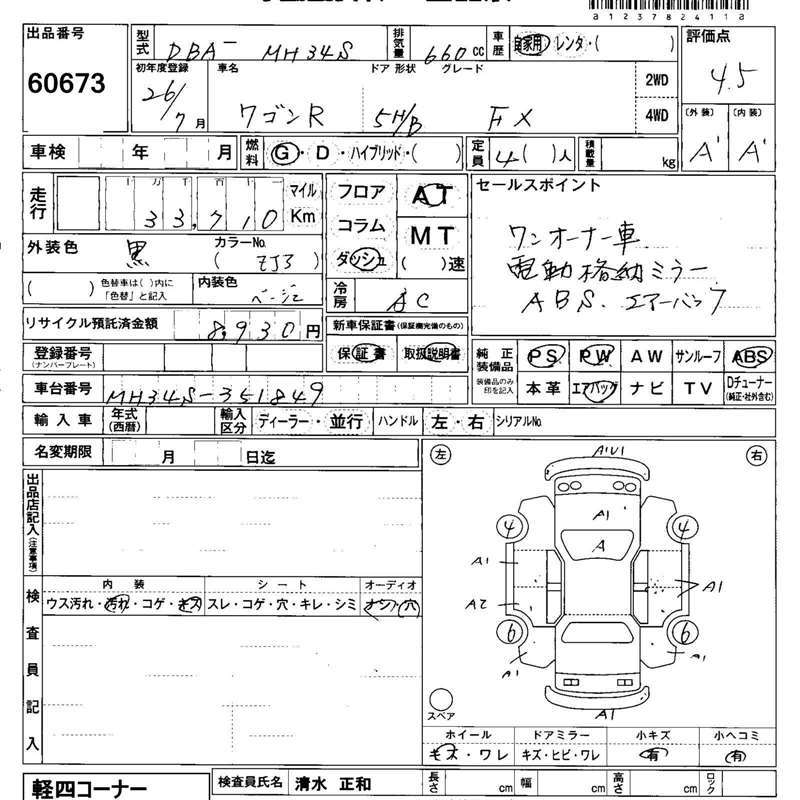 a 1 2 3 7 8 2 4 1 1 a
出品番号
60673
型式 DBA- MH34S 排気量 660 cc 車歴 自家用・レンタ・( )
評価点
4.5
初年度登録 車名 ドア 形状 グレード
26/7月 ワゴンR 5H/B FX
2WD
4WD
(外装) (内装)
A' A'
車検 年 月 燃料 G・D・ハイブリッド・( ) 定員 4( )人 積載量 kg
走行 万 千 百 十 一 マイル
33,710 Km
フロア
コラム
ダッシュ
AT
MT
( )速
セールスポイント
ワンオーナー車
電動格納ミラー
ABS. エアーバッグ
外装色 黒 カラーNo.
( ZJ3 )
( ) 色替車は( )内に「色替」と記入 内装色 ベージュ
冷房 AC
リサイクル預託済金額 8,930円
新車保証書(保証欄完備のもの)
保証書 取扱説明書
登録番号
(ナンバープレート)
純正装備品 PS PW AW サンルーフ ABS
装備品のみ印を記入 本革 エアバッグ ナビ TV Dチューナー
(純正・社外含む)
車台番号 MH34S-351849
輸入車 年式(西暦) 輸入区分 ディーラー・並行 ハンドル 左・右 シリアルNo.
名変期限 月 日迄
左 右
出品店記入(注意事項)
A1U1
A1
A
4 4
A1 A1
A2
6 6
A1 A1
A1
スペア
検査員記入
内装 シート オーディオ
ウス汚れ・汚れ・コゲ・キズ スレ・コゲ・穴・キレ・シミ ナシ・穴
ホイール ドアミラー 小キズ 小ヘコミ
キズ・ワレ キズ・ヒビ・ワレ 有 有
軽四コーナー 検査員氏名 清水 正和 長さ cm 幅 cm 高さ cm ロック